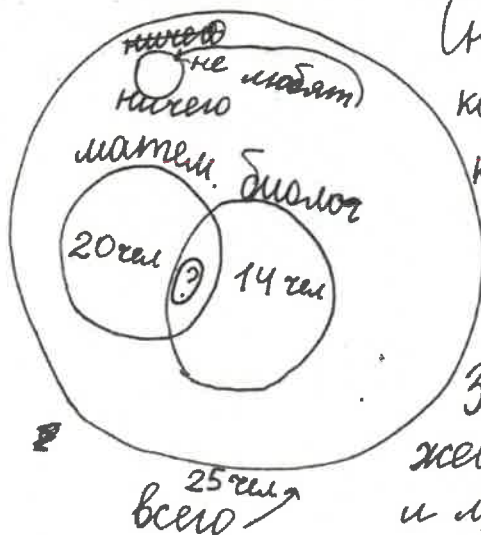 ничего
не любят
ничего
матем.
биолог
20 чел
?
14 чел
25 чел
всего
(н
ко
н
З
жев
и м